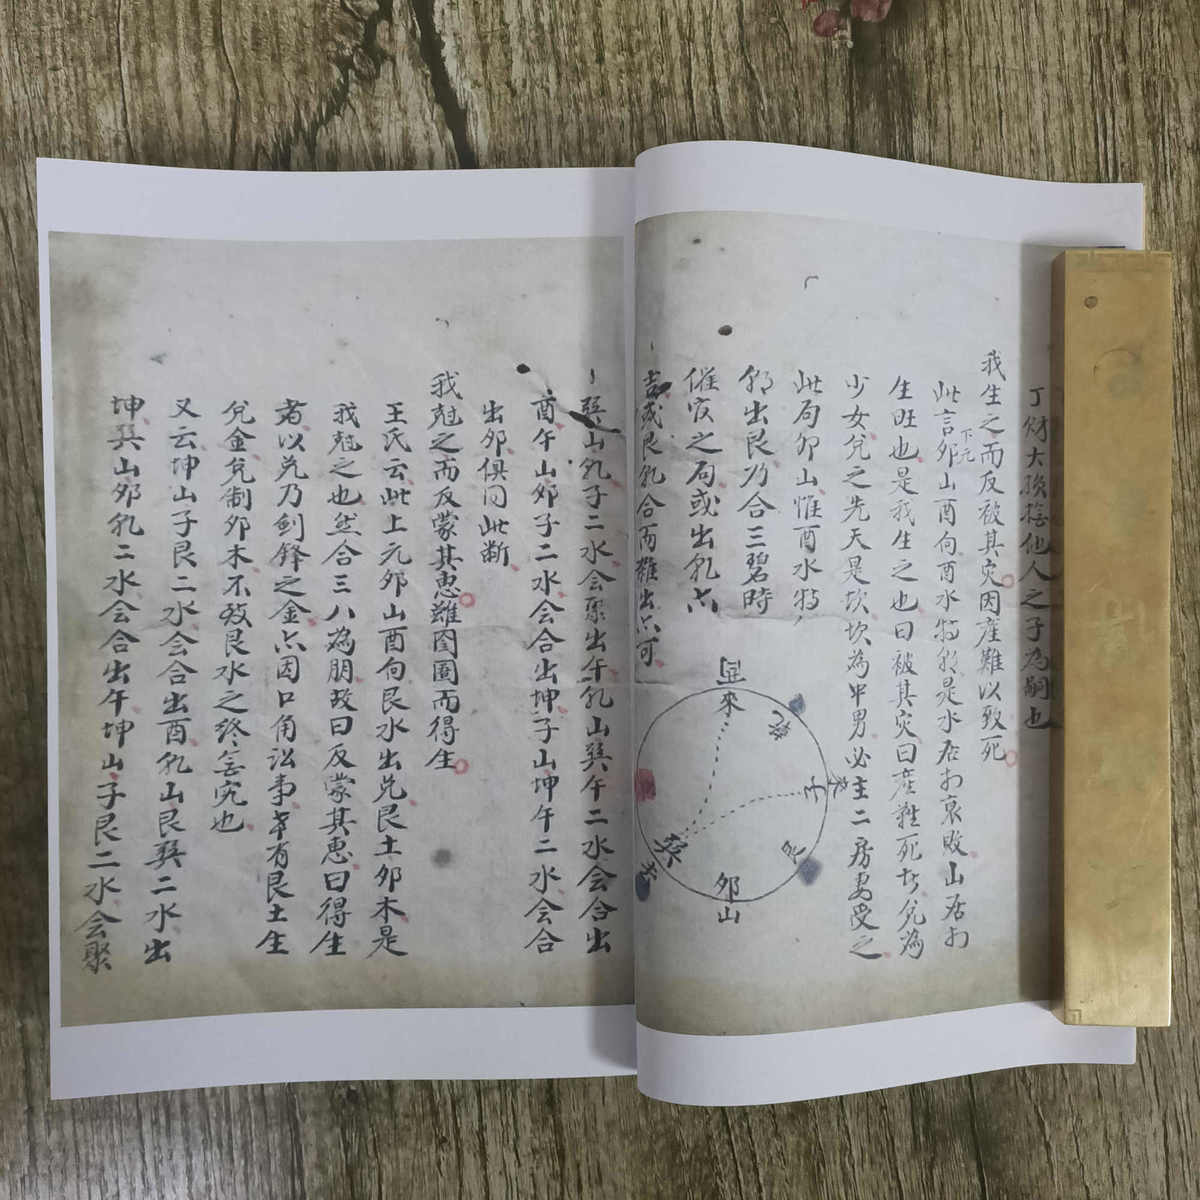 丁財大換搖他人之子為嗣也
我生之而反被其灾因產難以致死
此言下元卯山酉向酉水特朝是水居衰敗山居
生旺也是我生之也曰被其灾曰產難死者兌為
少女兌之先天是坎坎為中男必主二房妻受之
此局卯山惟酉水特
朝出艮乃合三碧時
催官之局或出乹亦
吉或艮乹合而雜出亦可
酉來
乾
子
艮
卯山
巽去
巽山乹子二水会聚出午乹山巽午二水会合出
酉午山卯子二水会合出坤子山坤午二水会合
出卯俱同此斷
我尅之而反蒙其惠雖囹圄而得生
王氏云此上元卯山酉向艮水出兌艮土卯木是
我尅之也然合三八為朋故曰反蒙其惠曰得生
者以兌乃劍鋒之金亦因口角訟事幸有艮土生
兌金兌制卯木不致艮水之終無宄也
又云坤山子艮二水会合出酉乹山艮巽二水出
坤巽山卯乹二水会合出午坤山子艮二水会聚